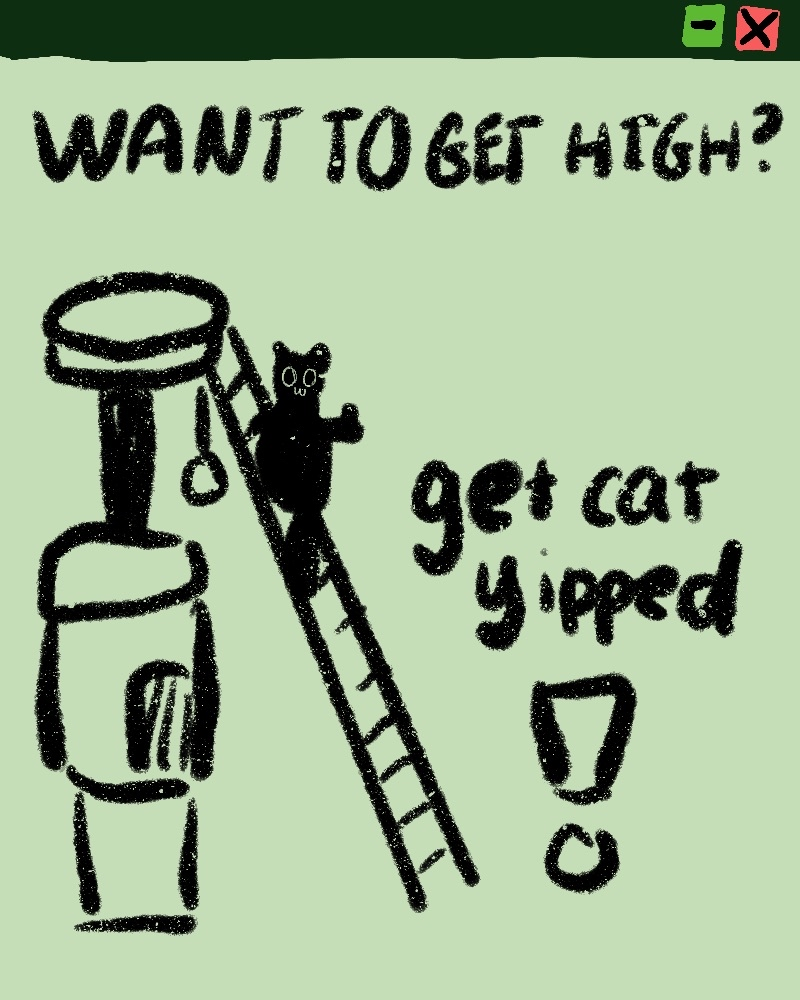 WANT TO GET HIGH?
get cat
yipped
!